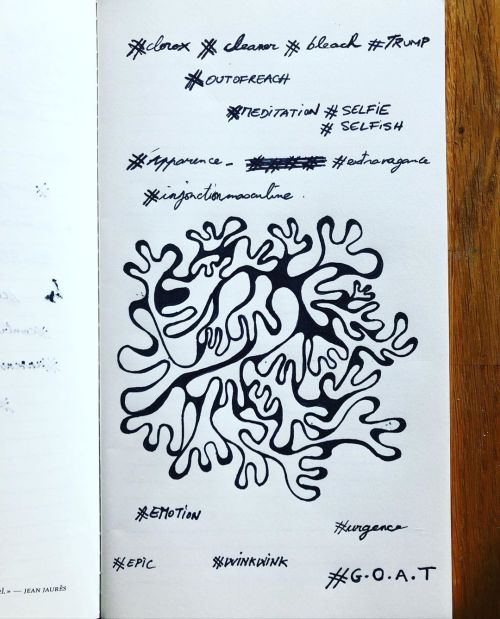 #clorox # cleaner # bleach #TRUMP
#OUTOFREACH
#MEDITATION # SELFIE
# SELFISH
#apparence - #extravagance
#injonctionmasculine.
#EMOTION
#urgence
#EPIC #WINKWINK
#G.O.A.T
el. » — JEAN JAURÈS